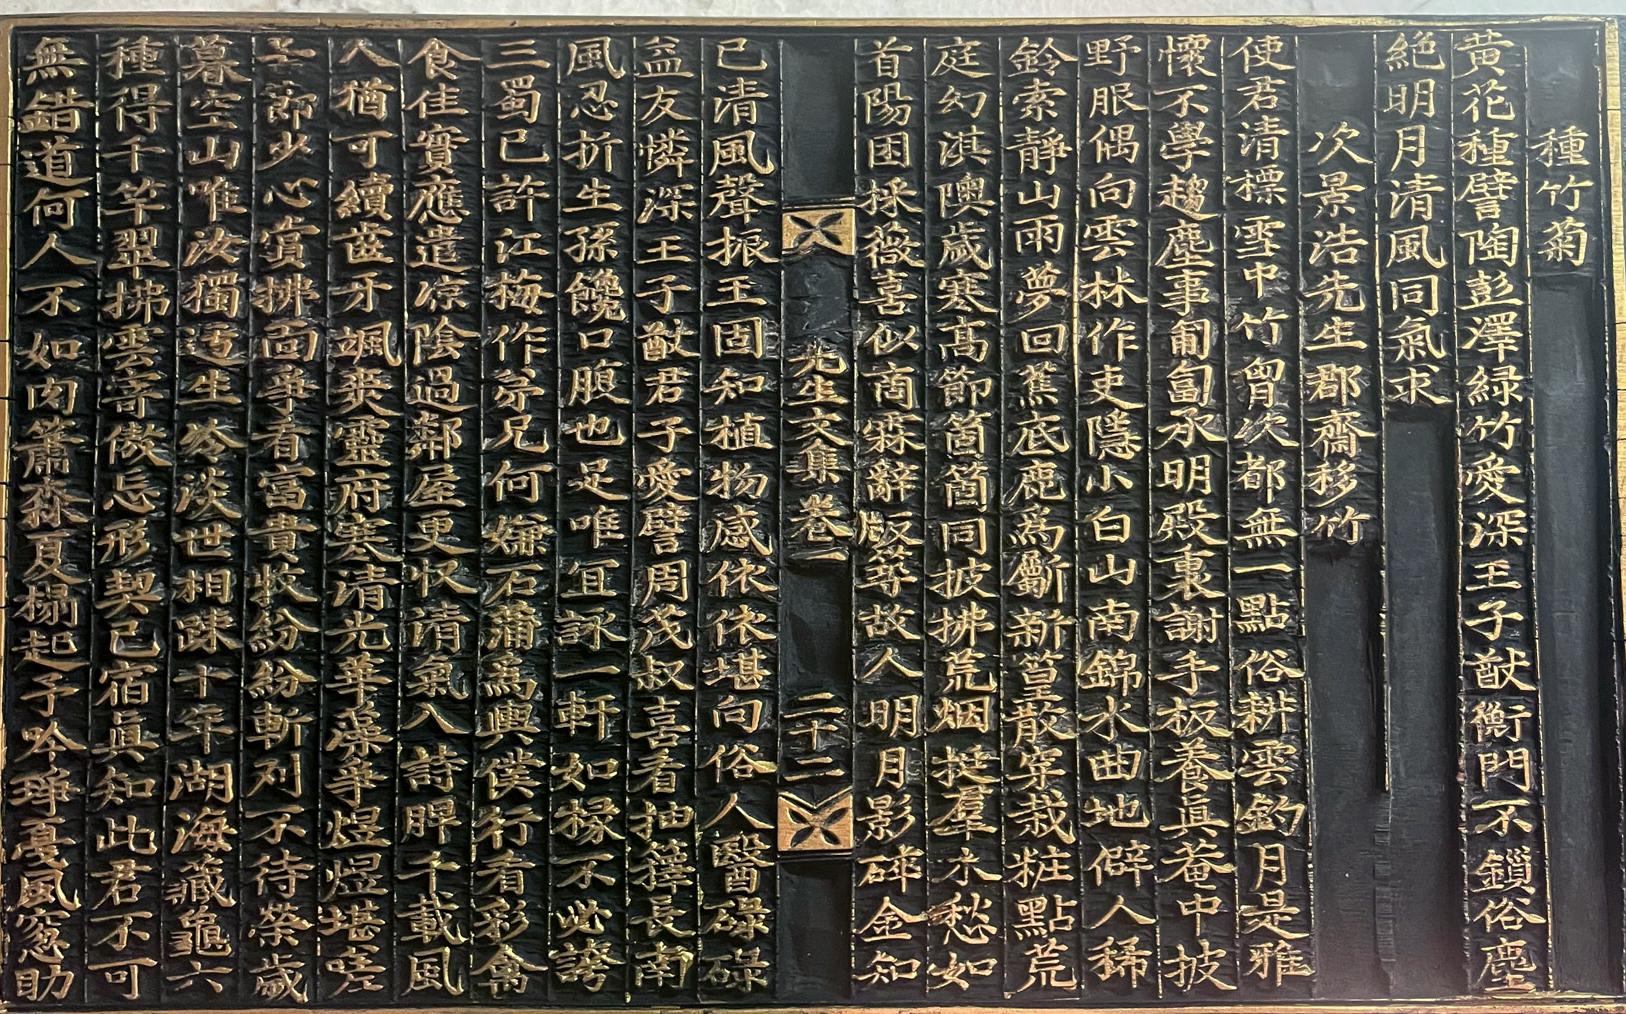 種竹菊
黄花種譬陶彭澤緑竹愛深王子猷衡門不鎖俗塵
絶明月清風同氣求
次景浩先生郡齋移竹
使君清標雪中竹胷次都無一點俗耕雲釣月是雅
懷不學趨塵事匍匐承明殿裏謝手板養眞菴中披
野服偶向雲林作吏隱小白山南錦水曲地僻人稀
鈴索靜山雨夢回蕉底鹿爲斸新篁散穿栽粧點荒
庭幻淇隩歲寒高節箇箇同披拂荒烟挺羣木愁如
首陽困採薇喜似商霖辭版築故人明月影碎金知
先生文集卷一
二十二
已清風聲振玉固知植物感依依堪向俗人醫碌碌
益友憐深王子猷君子愛譬周茂叔喜看抽籜長南
風忍折生孫饞口腹也足唯宜詠一軒如椽不必誇
三蜀已許江梅作弟兄何嫌石蒲爲輿僕行看彩禽
食佳實應遣凉陰過鄰屋更收清氣入詩脾千載風
人猶可續齒牙颯爽靈府寒清光華藻爭煜煜堪嗟
苦節少心賞拂面爭看富貴牧紛紛斬刈不待榮歲
暮空山唯汝獨迃生冷淡世相踈十年湖海藏龜六
種得千竿翠拂雲寄傲忘形契已宿眞知此君不可
無錯道何人不如肉簫森夏榻起予吟琤戛風窓助